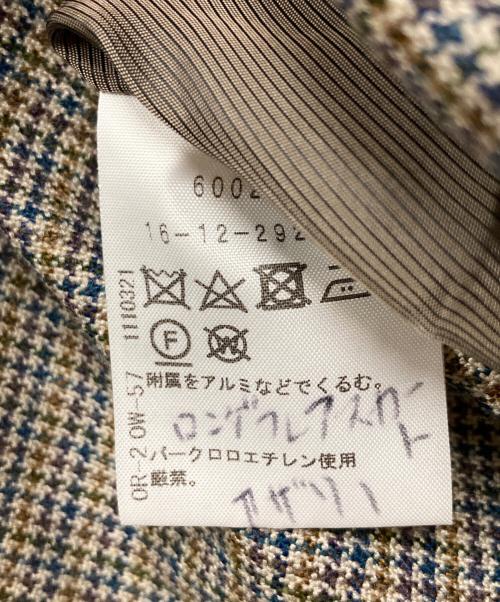 6002
16-12-292
1110321
F
W
OR-2 OW-57
附属をアルミなどでくるむ。
ロングフレアスカート
パークロロエチレン使用
厳禁。